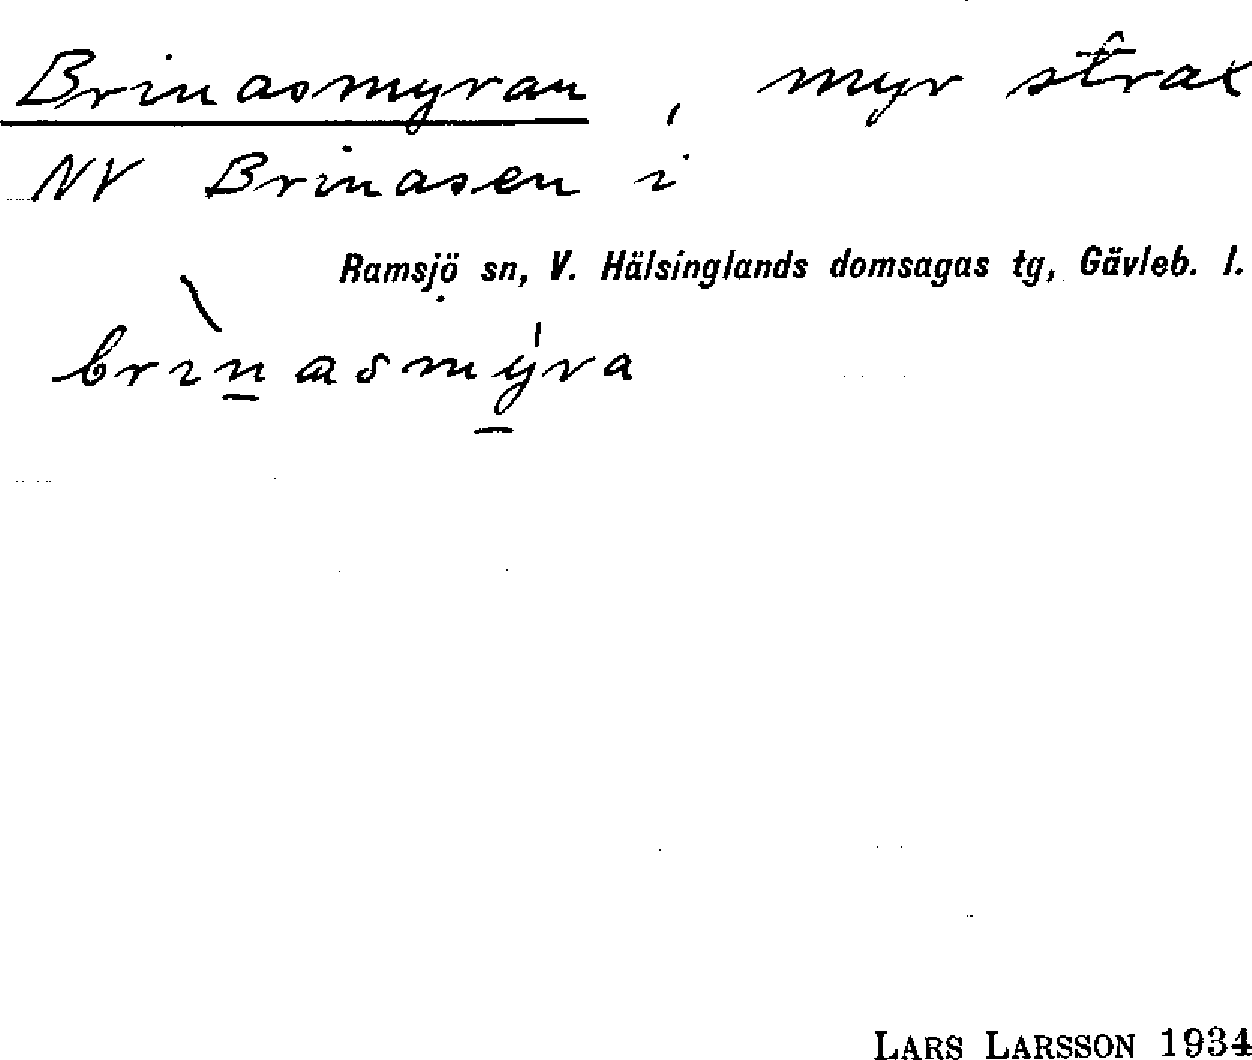 Brinasmyran, myr strax
NV Brinasen i
Ramsjö sn, V. Hälsinglands domsagas tg, Gävleb. l.
brinasmyra
LARS LARSSON 1934